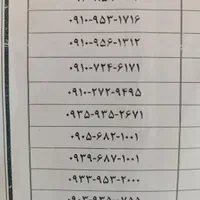 ۰۹۱۰-۹۵۳-۱۷۱۶
۰۹۱۰-۹۵۶-۱۳۱۲
۰۹۱۰-۷۲۴-۶۱۷۱
۰۹۱۰-۲۷۲-۹۴۹۵
۰۹۳۵-۹۳۵-۲۶۷۱
۰۹۰۵-۶۸۲-۱۰۰۱
۰۹۳۹-۶۸۷-۱۰۰۱
۰۹۳۳-۹۵۳-۲۰۰۰